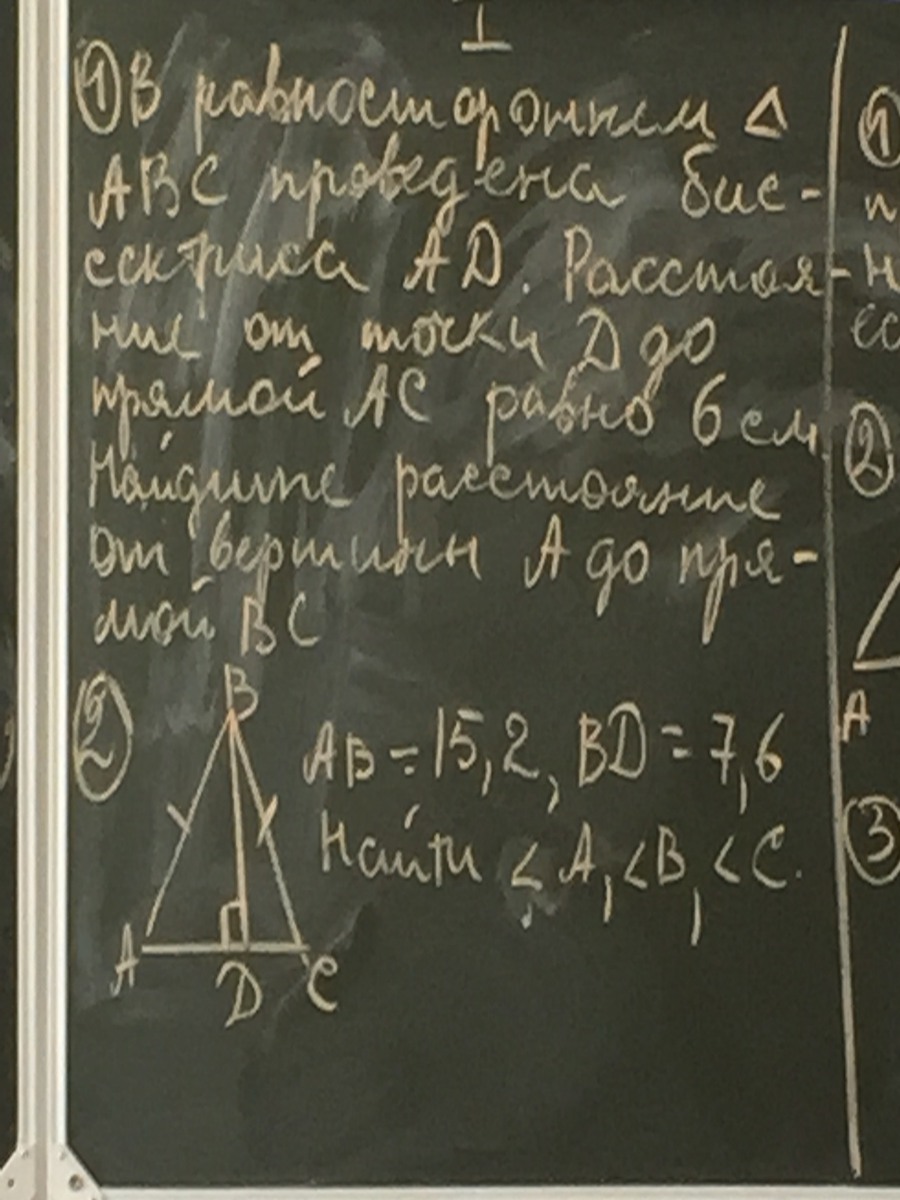 I
① В равностороннем △
ABC проведена бис-
сектриса AD. Расстоя-
ние от точки D до
прямой AC равно 6 см
Найдите расстояние
от вершины A до пря-
мой BC
②
B
AB = 15,2, BD = 7,6
Найти <A, <B, <C.
A
D
C
①
п
н
ес
②
A
③